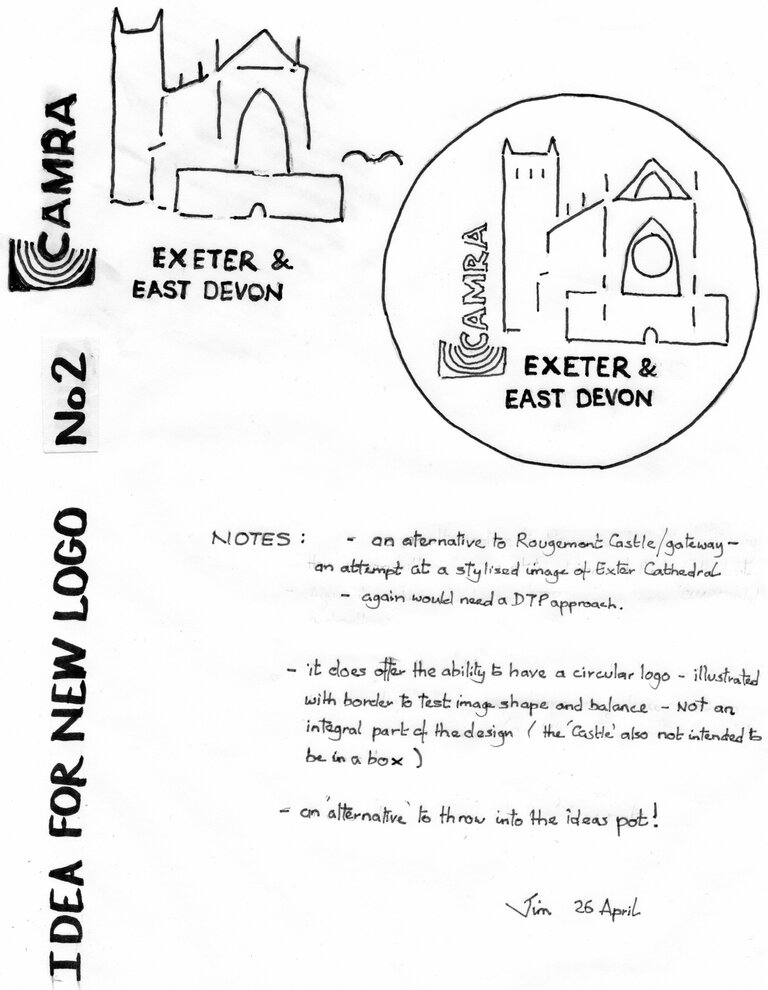 CAMRA
EXETER &
EAST DEVON
CAMRA
EXETER &
EAST DEVON
IDEA FOR NEW LOGO No2
NOTES : - an aternative to Rougemont Castle/gateway -
an attempt at a stylised image of Exter Cathedral
- again would need a DTP approach.
- it does offer the ability to have a circular logo - illustrated
with border to test image shape and balance - NOT an
integral part of the design ( the 'Castle' also not intended to
be in a box )
- an 'alternative' to throw into the ideas pot!
Jim 26 April